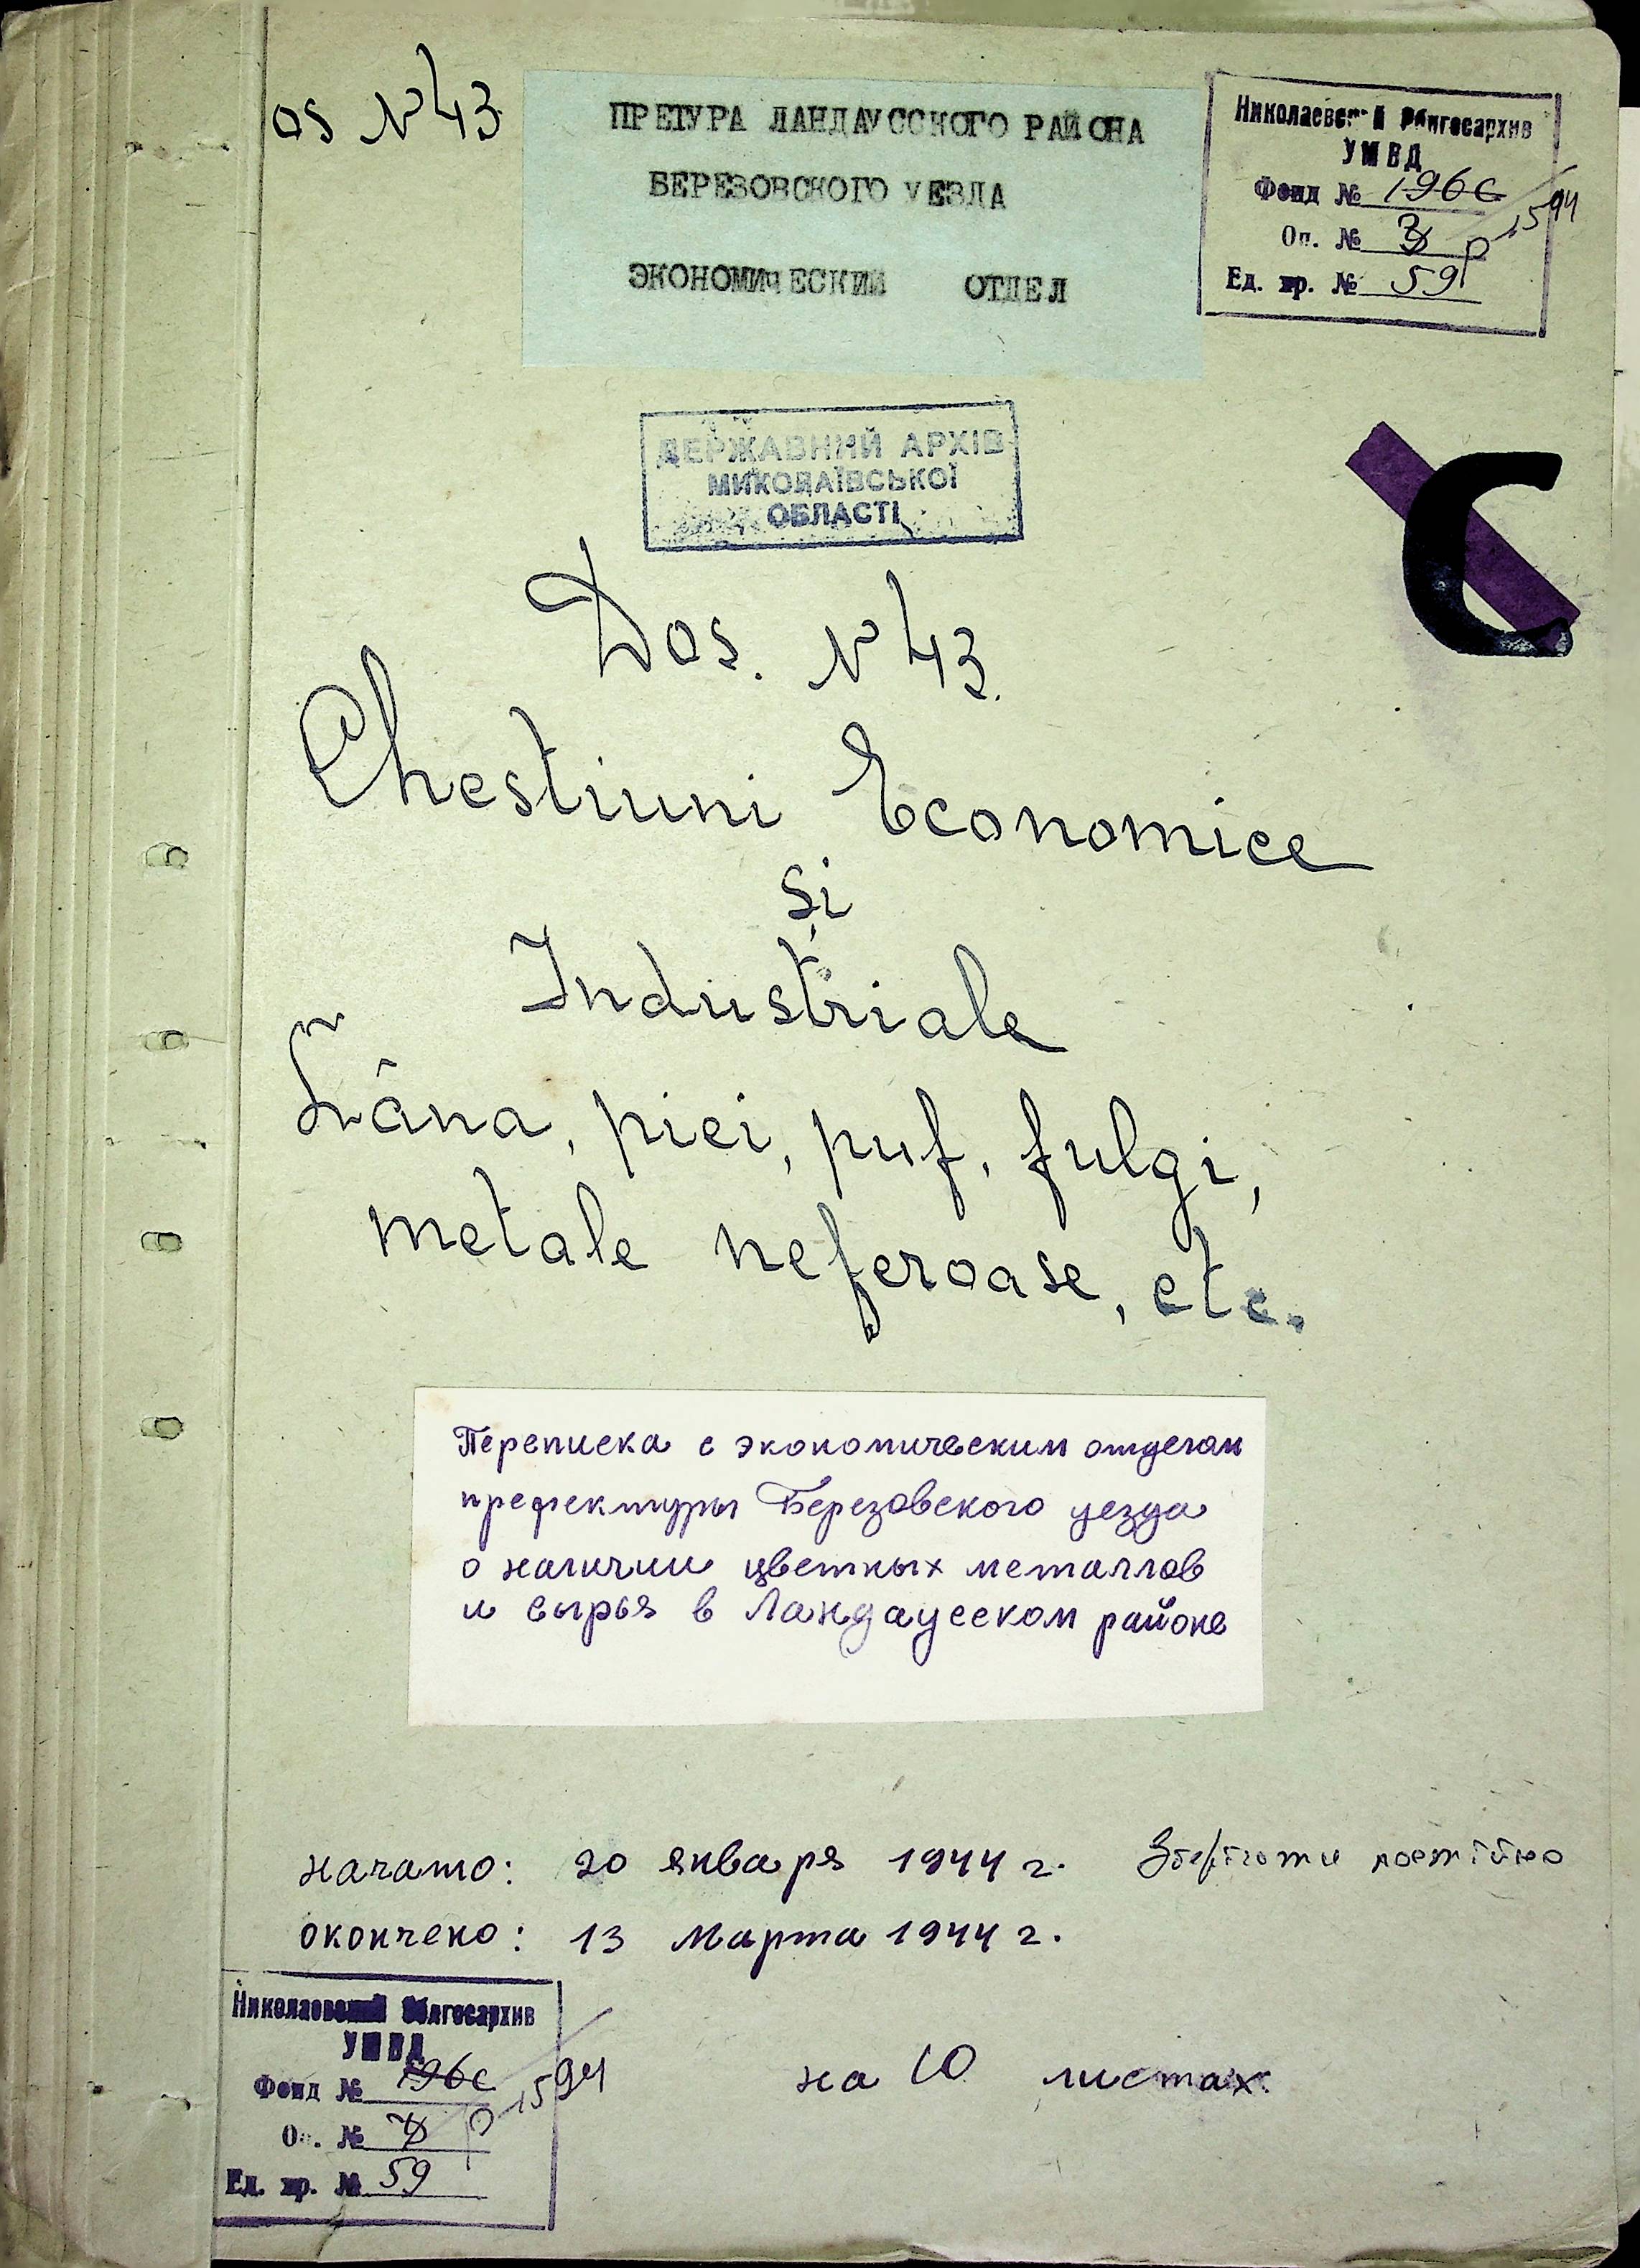 os N 43
ПРЕТУРА ЛАНДАУССКОГО РАЙОНА
БЕРЕЗОВСКОГО УЕЗДА
ЭКОНОМИЧЕСКИЙ ОТДЕЛ
Николаевский Облгосархив
УМВД
Фонд № 196с
р-1594
Оп. №
Ед. хр. № 59
ДЕРЖАВНИЙ АРХІВ
МИКОЛАЇВСЬКОЇ
ОБЛАСТІ
C
Dos. N 43.
Chestiuni Economice
și
Industriale
Lâna, piei, puf, fulgi,
metale neferoase, etc.
Переписка с экономическим отделом
префектуры Березовского уезда
о наличии цветных металлов
и сырья в Ландаусском районе
начато: 20 января 1944 г.
Зберігати постійно
окончено: 13 Марта 1944 г.
Николаевский Облгосархив
УМВД
Фонд № 196с
р-1594
Оп. №
Ед. хр. № 59
на 10 листах